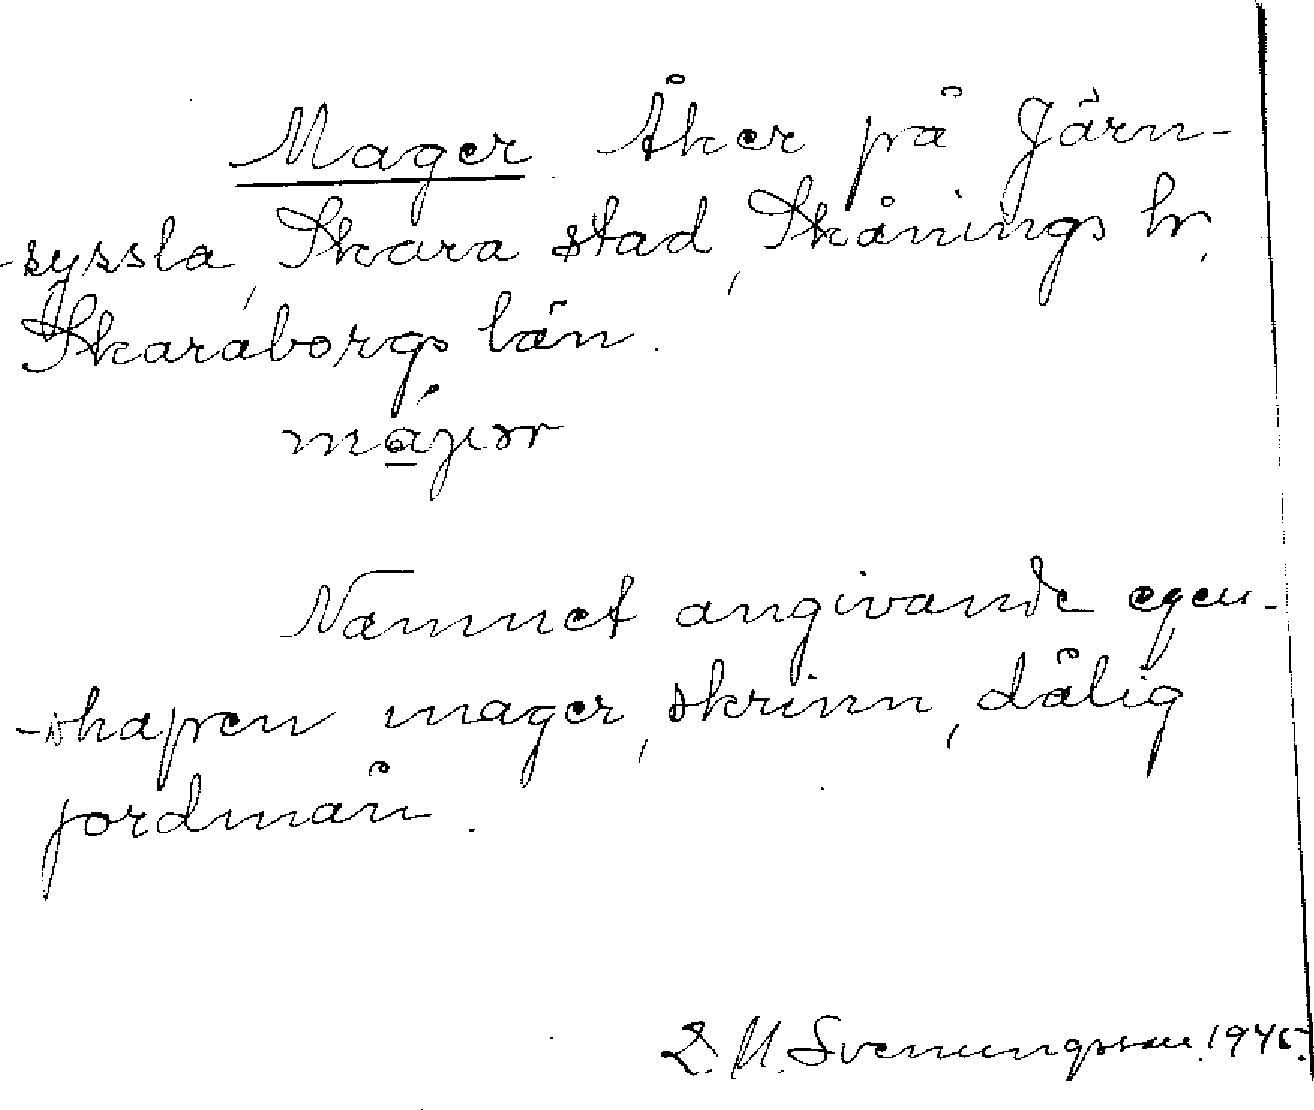 Mager Åker på Järn-
-syssla, Skara stad, Skånings hr,
Skaraborgs län.
Namnet angivande egen-
-skapen mager, skrinn, dålig
jordmån.
D. M. Svenungsson. 1945.